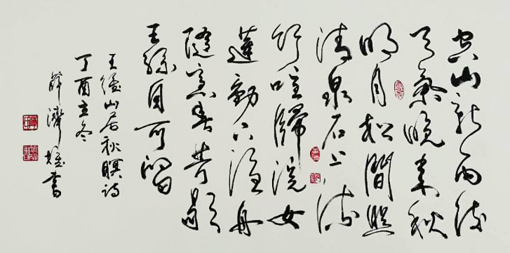 空山新雨後
天氣晚來秋
明月松間照
清泉石上流
竹喧歸浣女
蓮動下漁舟
隨意春芳歇
王孫自可留
王維山居秋暝詩
丁酉立冬
書